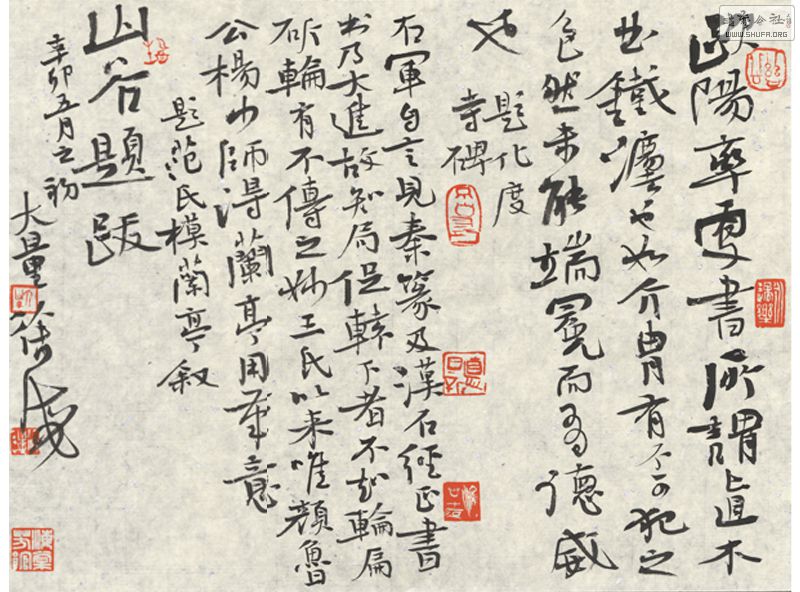 歐陽率更書所謂直木
曲鐵灋也如介胄有不可犯之
色然未能端冕而有德威
也
題化度
寺碑
右軍自言見秦篆及漢石經正書
書乃大進故知局促轅下者不知輪扁
斫輪有不傳之妙王氏以來唯顏魯
公楊少師得蘭亭用筆意
題范氏模蘭亭敘
山谷題跋
辛卯五月之初
大量
WWW.SHUFA.ORG